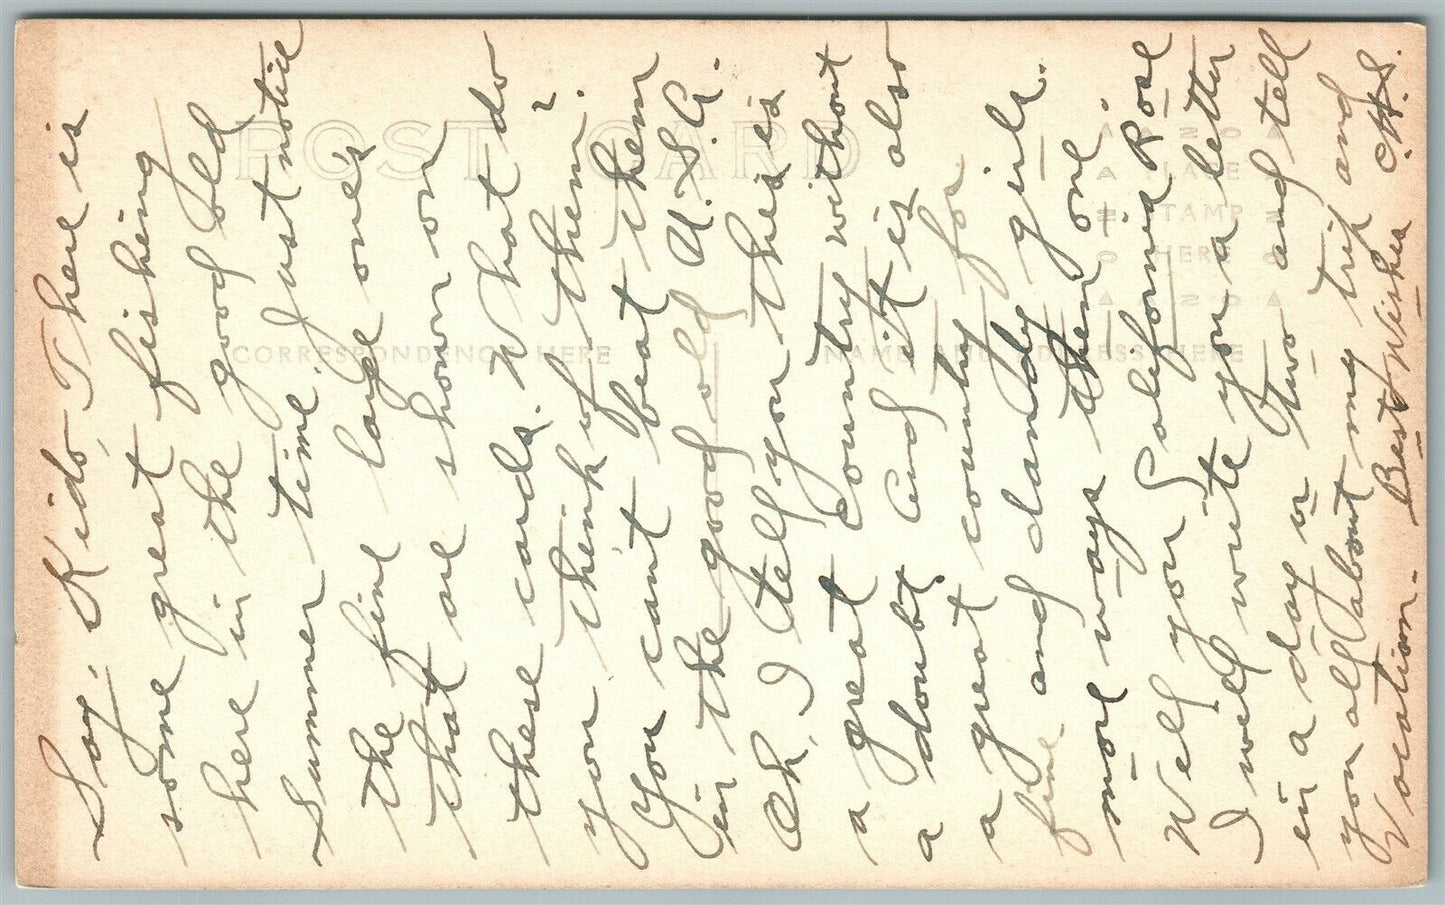 Say, Kido, There is
some great fishing
here in the good old
Summer time. Just notice
the fine large one's
that are shown on
these cards. What do
you think of them?
You cant beat them
in the good old U.S.A.
Eh, I tell you this is
a great country without
a doubt. And it is also
a great country for
fine and dandy girls.
more ways then one.
Well you California Rose
I will write you a letter
in a day or two and tell
you all about my trip and
Vacation. Best Wishes C.H.S.
POST CARD
CORRESPONDENCE HERE
NAME AND ADDRESS HERE
AZO
PLACE
STAMP
HERE
AZO